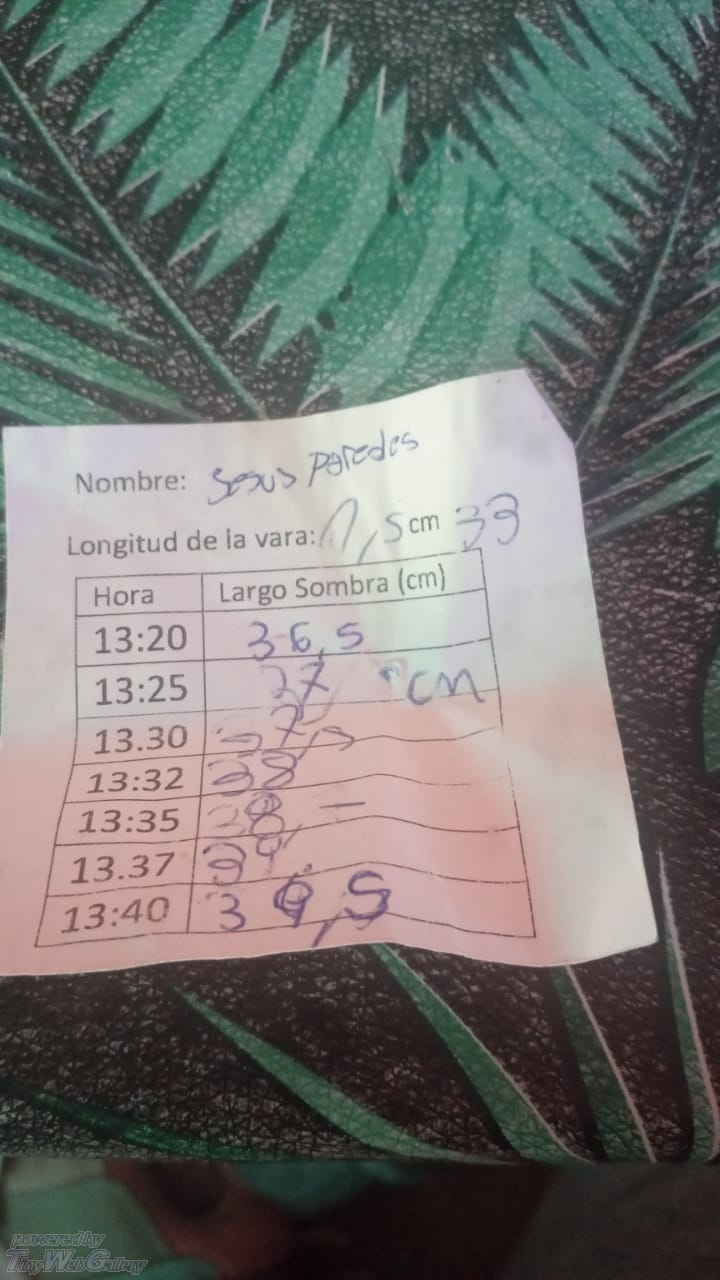 Nombre: Jesus paredes
Longitud de la vara: 1,5 cm 33
Hora Largo Sombra (cm)
13:20 36,5
13:25 37 cm
13.30 37,5
13:32 38
13:35 38, -
13.37 39,
13:40 39,5
powered by
TinyWebGallery